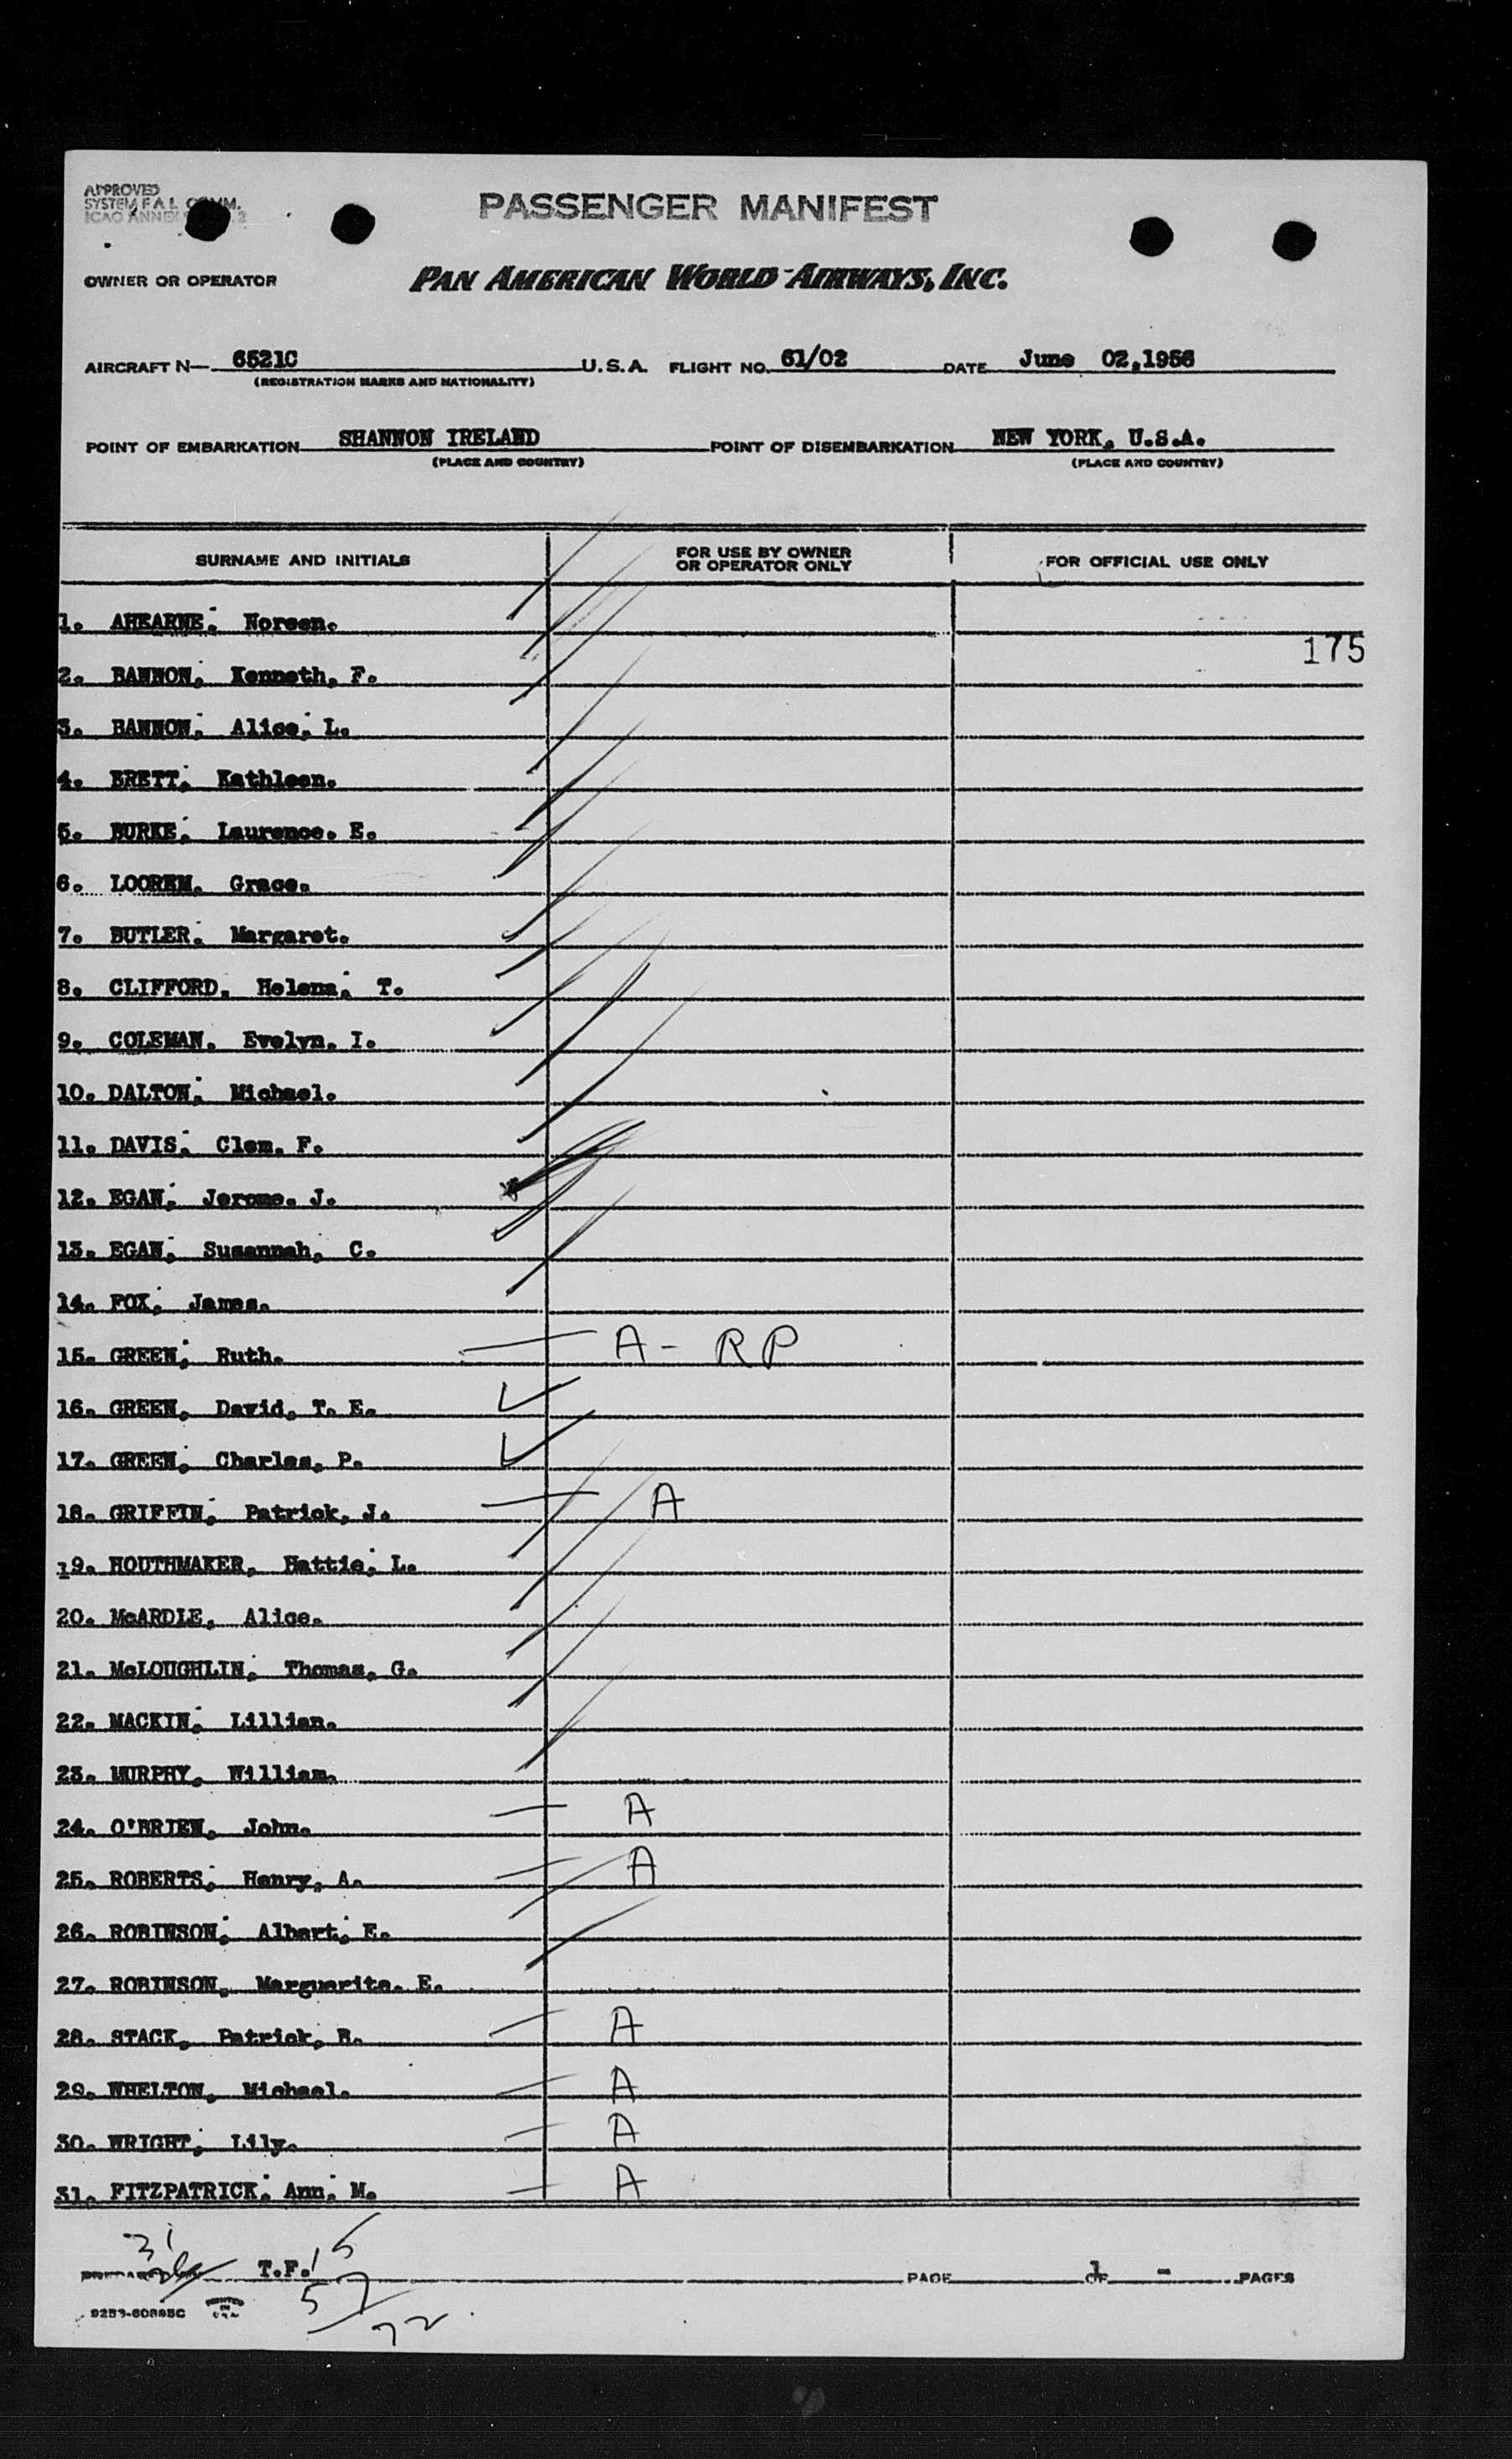 APPROVED
SYSTEM F A L COMM.
ICAO ANNEX 2
PASSENGER MANIFEST
OWNER OR OPERATOR PAN AMERICAN WORLD AIRWAYS, INC.
AIRCRAFT N— 6521C U.S.A. FLIGHT NO. 61/02 DATE June 02,1956
(REGISTRATION MARKS AND NATIONALITY)
POINT OF EMBARKATION SHANNON IRELAND POINT OF DISEMBARKATION NEW YORK, U.S.A.
(PLACE AND COUNTRY) (PLACE AND COUNTRY)
SURNAME AND INITIALS FOR USE BY OWNER OR OPERATOR ONLY FOR OFFICIAL USE ONLY
1. AHEARNE; Noreen.
175
2. BANNON; Kenneth, F.
3. BANNON; Alice; L.
4. BRETT; Kathleen.
5. BURKE; Laurence. E.
6. LOOREM. Grace.
7. BUTLER. Margaret.
8. CLIFFORD. Helena; T.
9. COLEMAN. Evelyn. I.
10. DALTON; Michael.
11. DAVIS; Clem. F.
12. EGAN; Jerome. J.
13. EGAN; Susannah; C.
14. FOX; James.
15. GREEN; Ruth. A - RP
16. GREEN, David, T. E.
17. GREEN; Charles, P.
18. GRIFFIN; Patrick, J. A
19. HOUTHMAKER, Hattie; L.
20. McARDLE, Alice.
21. McLOUGHLIN; Thomas, G.
22. MACKIN; Lillian.
23. MURPHY, William.
24. O'BRIEN, John. A
25. ROBERTS; Henry, A. A
26. ROBINSON; Albert; E.
27. ROBINSON, Marguerite. E.
28. STACK, Patrick, B. A
29. WHELTON, Michael. A
30. WRIGHT; Lily. A
31. FITZPATRICK; Ann; M. A
31
T.F. 15
PAGE 1 OF - PAGES
57
72